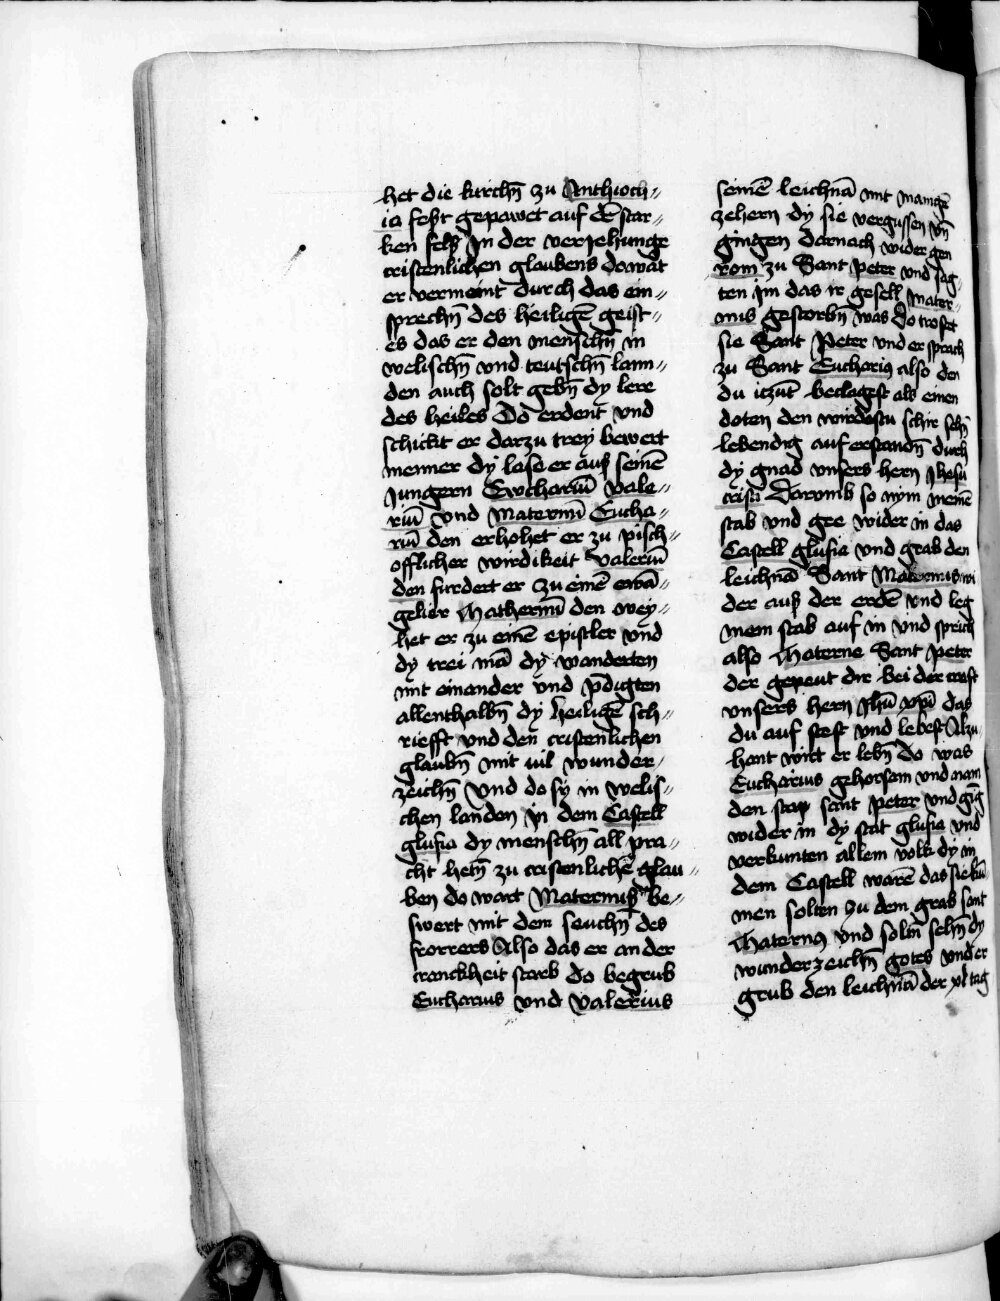 het die kirchn̄ zu Anthioch〃
ia fest gepawet auf dē star〃
ken fels In der veriehunge
cristenlichen glaubens dowart
er vermeint durch das ein〃
sprechn̄ des heiligē geist〃
es das er den menschn̄ in
welischn̄ vnd teutschn̄ lann〃
den auch solt gebn̄ dy lere
des heiles Do erdent vnd
schickt er darzu trey bewert
menner dy lasd er auß seinē
Jungern Ewchariū Vale〃
riū vnd Maternū Eucha〃
riū den erhohet er zu pisch〃
offlicher wirdikeit Valeriū
den furdert er zu einē ewā〃
gelier Mathernū den wey〃
het er zu einē epistler vnd
dy trei mā dy wanderten
mit einander vnd p̄digten
allenthalbn̄ dy heiligē sch〃
riefft vnd den cristenlichen
glaubn̄ mit uil wunder〃
zeichn̄ Vnd do sy in welis〃
chen landen in dem Castell
glusia dy menschn̄ all pra〃
cht hetn̄ zu cristenlichē glau〃
ben do wart Maternuß be〃
swert mit dem seuchn̄ des
frorrers Also das er an der
cranckheit starb do begrub
Eucharius vnd Valerius
seinē leichnā mit manigē
zehern dy sie vergussen vn̄
gingen darnach wider gen
rom zu Sant peter vnd sag〃
ten im das ir gesell Mater〃
nus gestorbn̄ was do trostet
sie Sant Peter vnd er sprach
zu Sant Euchariꝰ also den
du iczūt beclagest als einen
doten den wirdestu schir sehn̄
lebendig auf erstandn̄ durch
dy gnad vnsers hern Jhesu
cristi Darvmb so nym meinē
stab vnd gee wider in das
Castell glusia vnd grab den
leichnā Sant Maternus wi
der auß der erdē vnd leg
mein stab auf in vnd sprich
also Materne Sant peter
der gepeut dir bei der craft
vnsers hern Jhū xpī das
du auf stest vnd lebest Alzu〃
hant wirt er lebn̄ Do was
Eucharius gehorsam vnd nam
den stap sant peter vnd gīg
wider in dy stat glusia vnd
verkunten allem volk dy in
dem Castell warē das sie ku
men solten zu dem grab sant
Maternꝰ vnd soltn̄ sehn̄ dy
wunderzeichn̄ gotes vnd er
grub den leichnā der xl tag